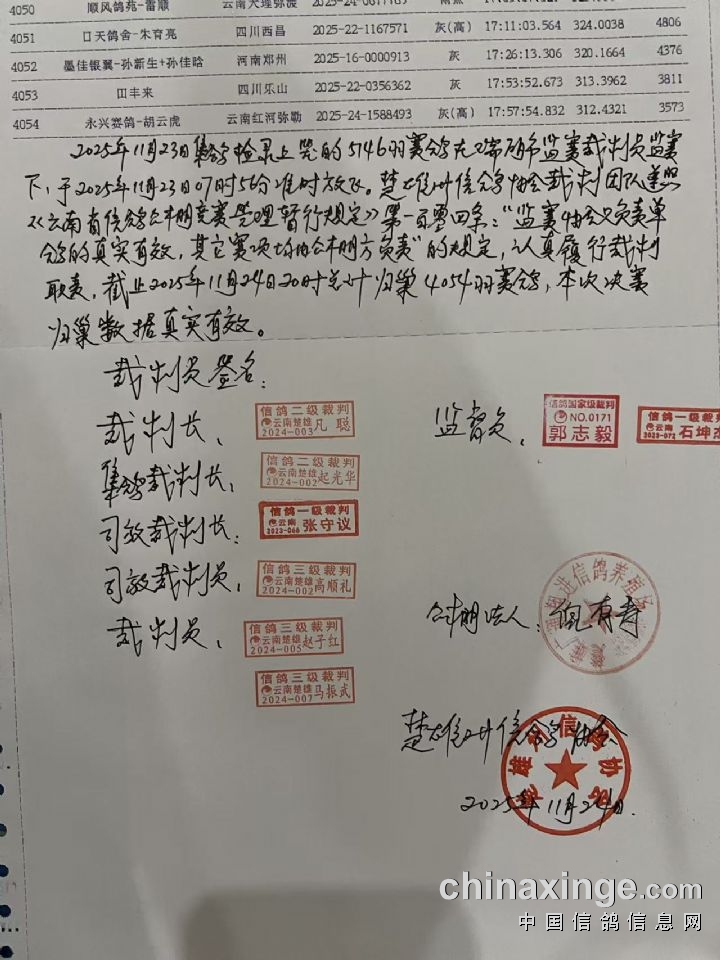 4050 顺风鸽苑-雷顺 云南大理弥渡 2025-24-0617189
4051 口天鸽舍-朱育亮 四川西昌 2025-22-1167571 灰(高) 17:11:03.564 324.0038 4806
4052 墨佳银翼-孙新生+孙佳晗 河南郑州 2025-16-0000913 灰 17:26:13.306 320.1664 4376
4053 田丰来 四川乐山 2025-22-0356362 灰 17:53:52.673 313.3962 3811
4054 永兴赛鸽-胡云虎 云南红河弥勒 2025-24-1588493 灰(高) 17:57:54.832 312.4321 3573
2025年11月23日集鸽检录上笼的5146羽赛鸽在 监赛裁判员监赛
下,于2025年11月23日07时56分准时放飞。楚雄州信鸽协会裁判团队遵照
《云南省信鸽公棚竞赛管理暂行规定》第一百零四条:“监赛协会仅负责单
鸽的真实有效,其它赛项均由公棚方负责”的规定,认真履行裁判
职责,截止2025年11月24日20时总计归巢4054羽赛鸽,本次决赛
归巢数据真实有效。
裁判员签名:
裁判长: 信鸽二级裁判 云南楚雄 2024-003 凡聪
监督员: 信鸽国家级裁判 NO.0171 郭志毅 信鸽一级裁判 云南 2023-072 石坤杰
集鸽裁判长: 信鸽二级裁判 云南楚雄 2024-002 起光华
司放裁判长: 信鸽一级裁判 云南 2023-068 张守议
司放裁判员: 信鸽三级裁判 云南楚雄 2024-002 高顺礼
公棚法人: 倪有青
信鸽养殖场
裁判员: 信鸽三级裁判 云南楚雄 2024-005 赵子红
信鸽三级裁判 云南楚雄 2024-007 马振武
楚雄州信鸽协会
楚雄州信鸽协会
2025年11月24日.
chinaxinge.com
中国信鸽信息网